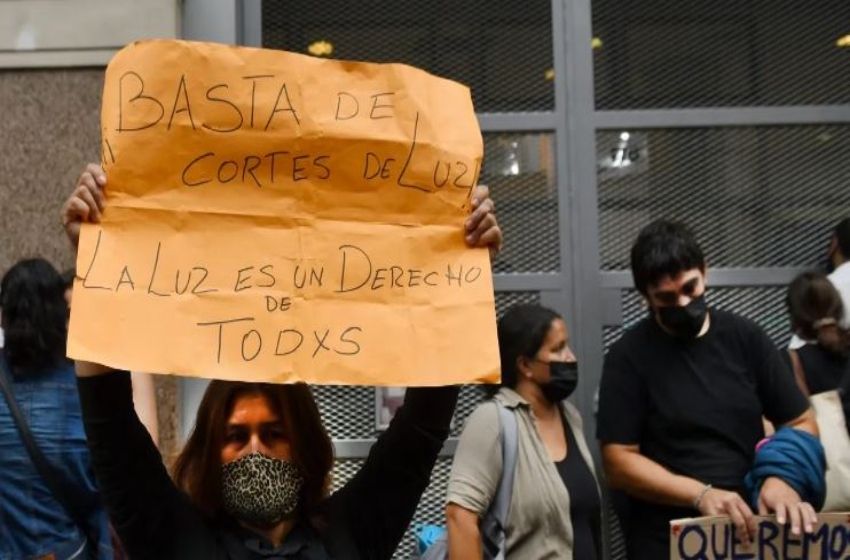 ¡¡BASTA DE
CORTES DE LUZ!
LA LUZ ES UN DERECHO
DE
TODXS
QUEREMOS